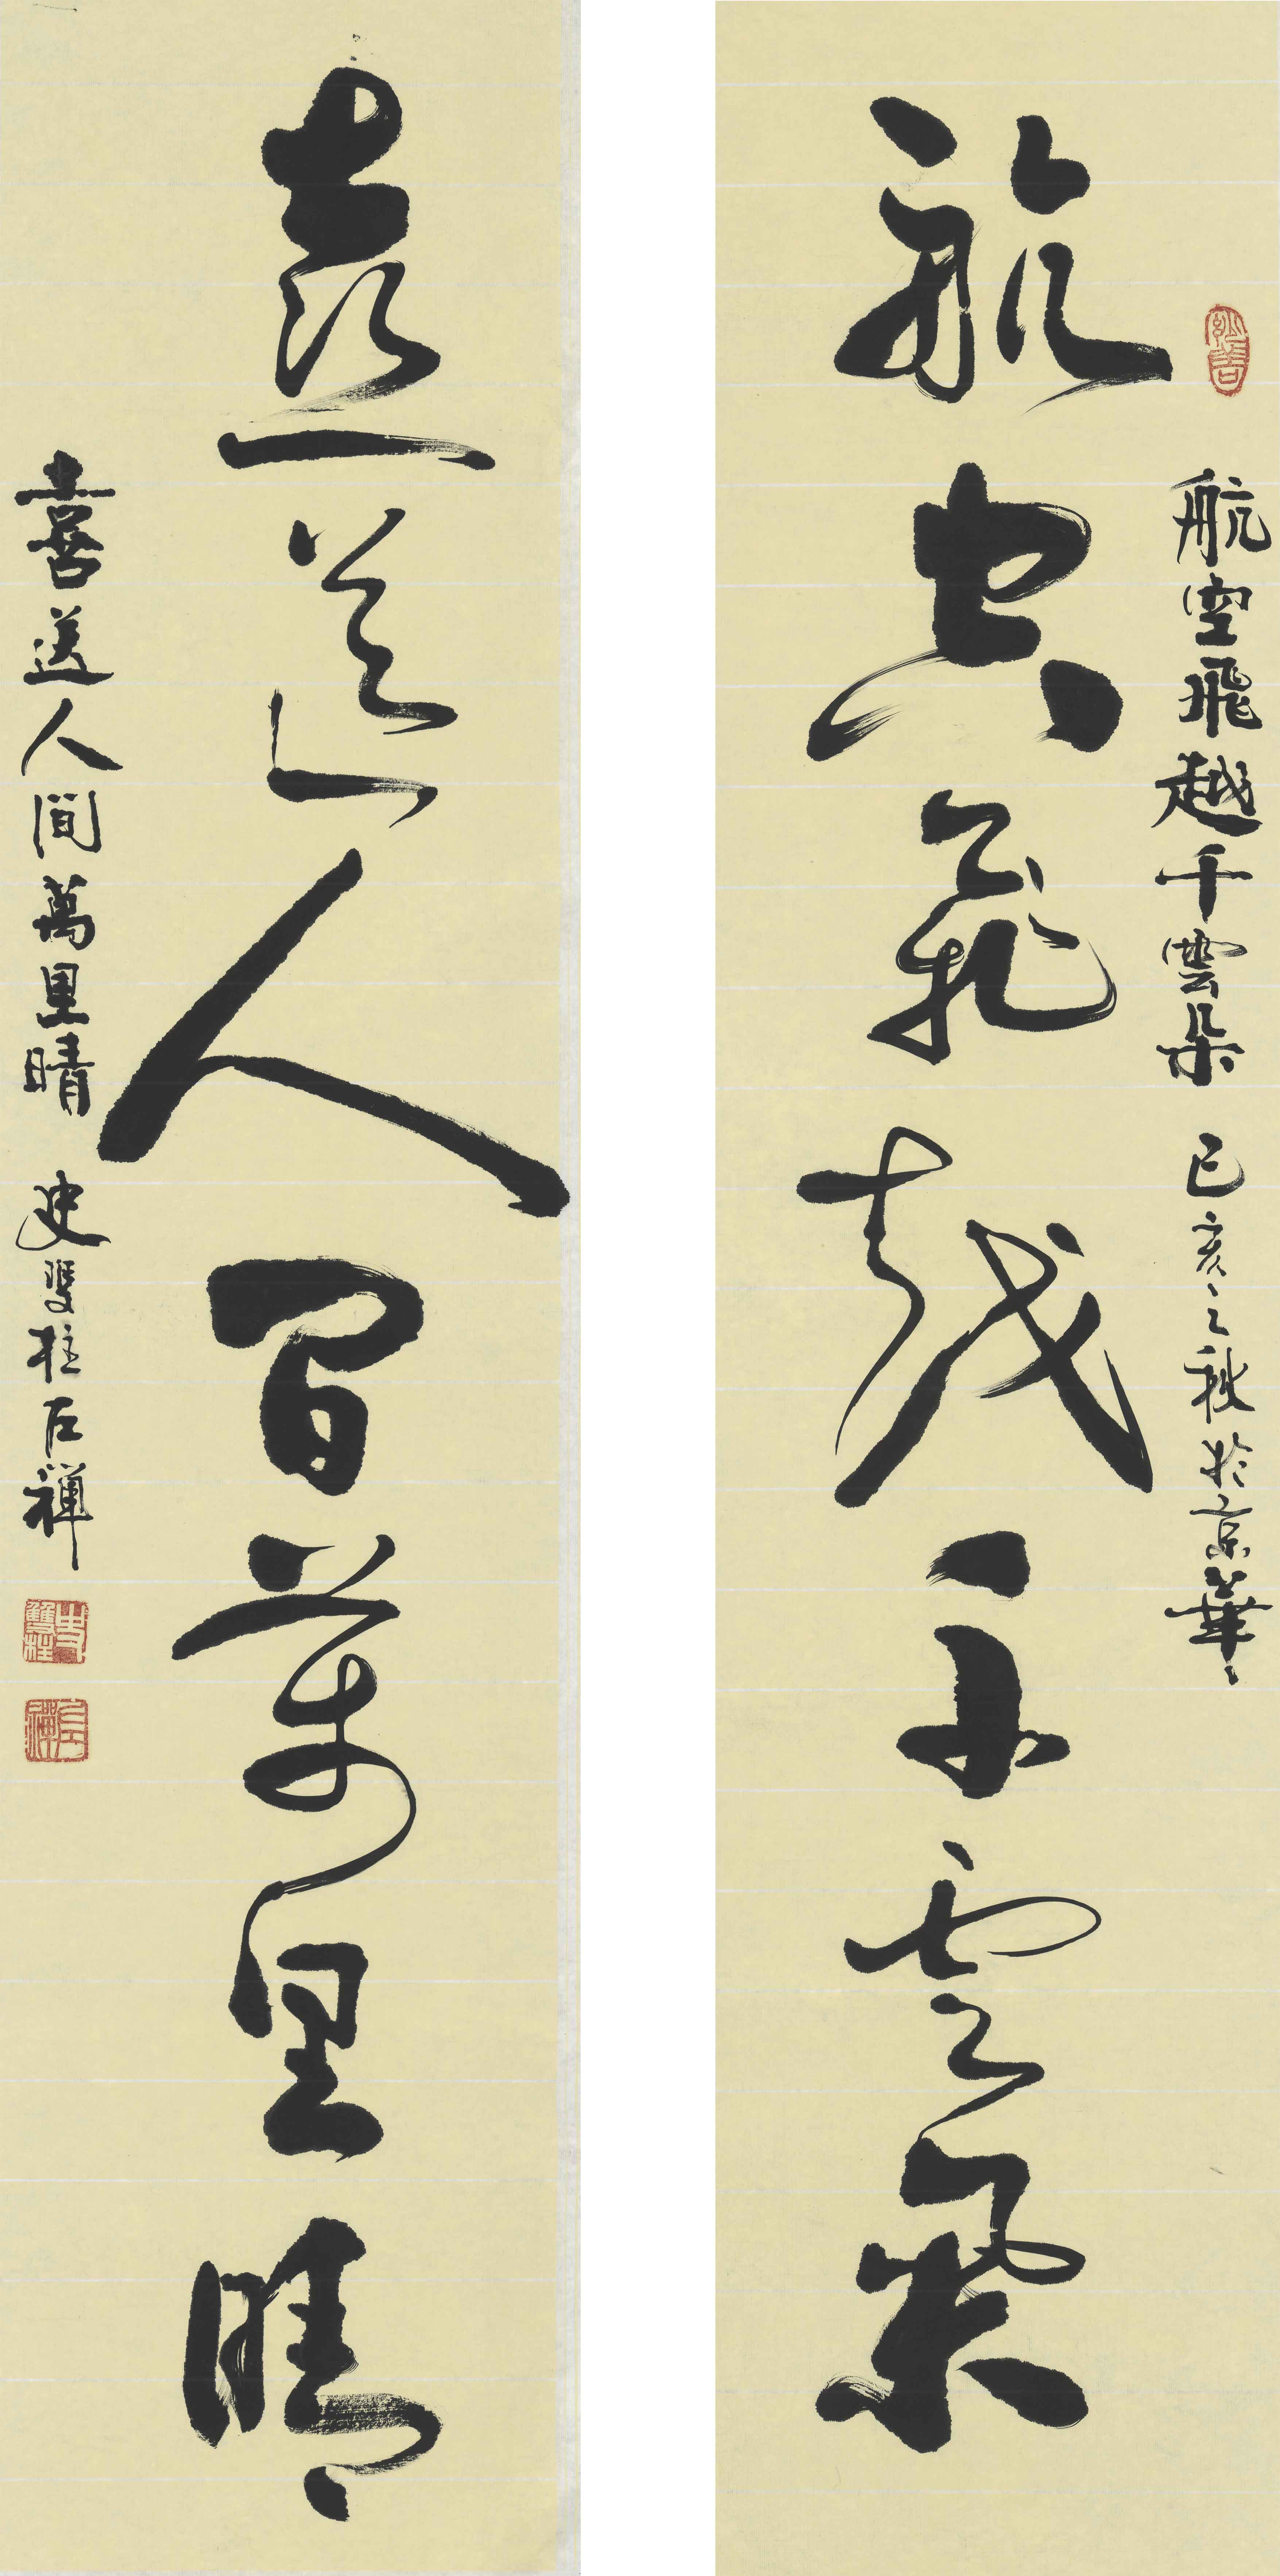 航空飛越千雲朵
航空飛越千雲朵 己亥之秋於京華
喜送人間萬里晴
喜送人間萬里晴 史雙柱石禪
史雙柱
石禪